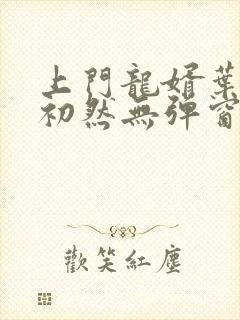 上門龍婿葉
初然無彈窗
歡笑紅塵